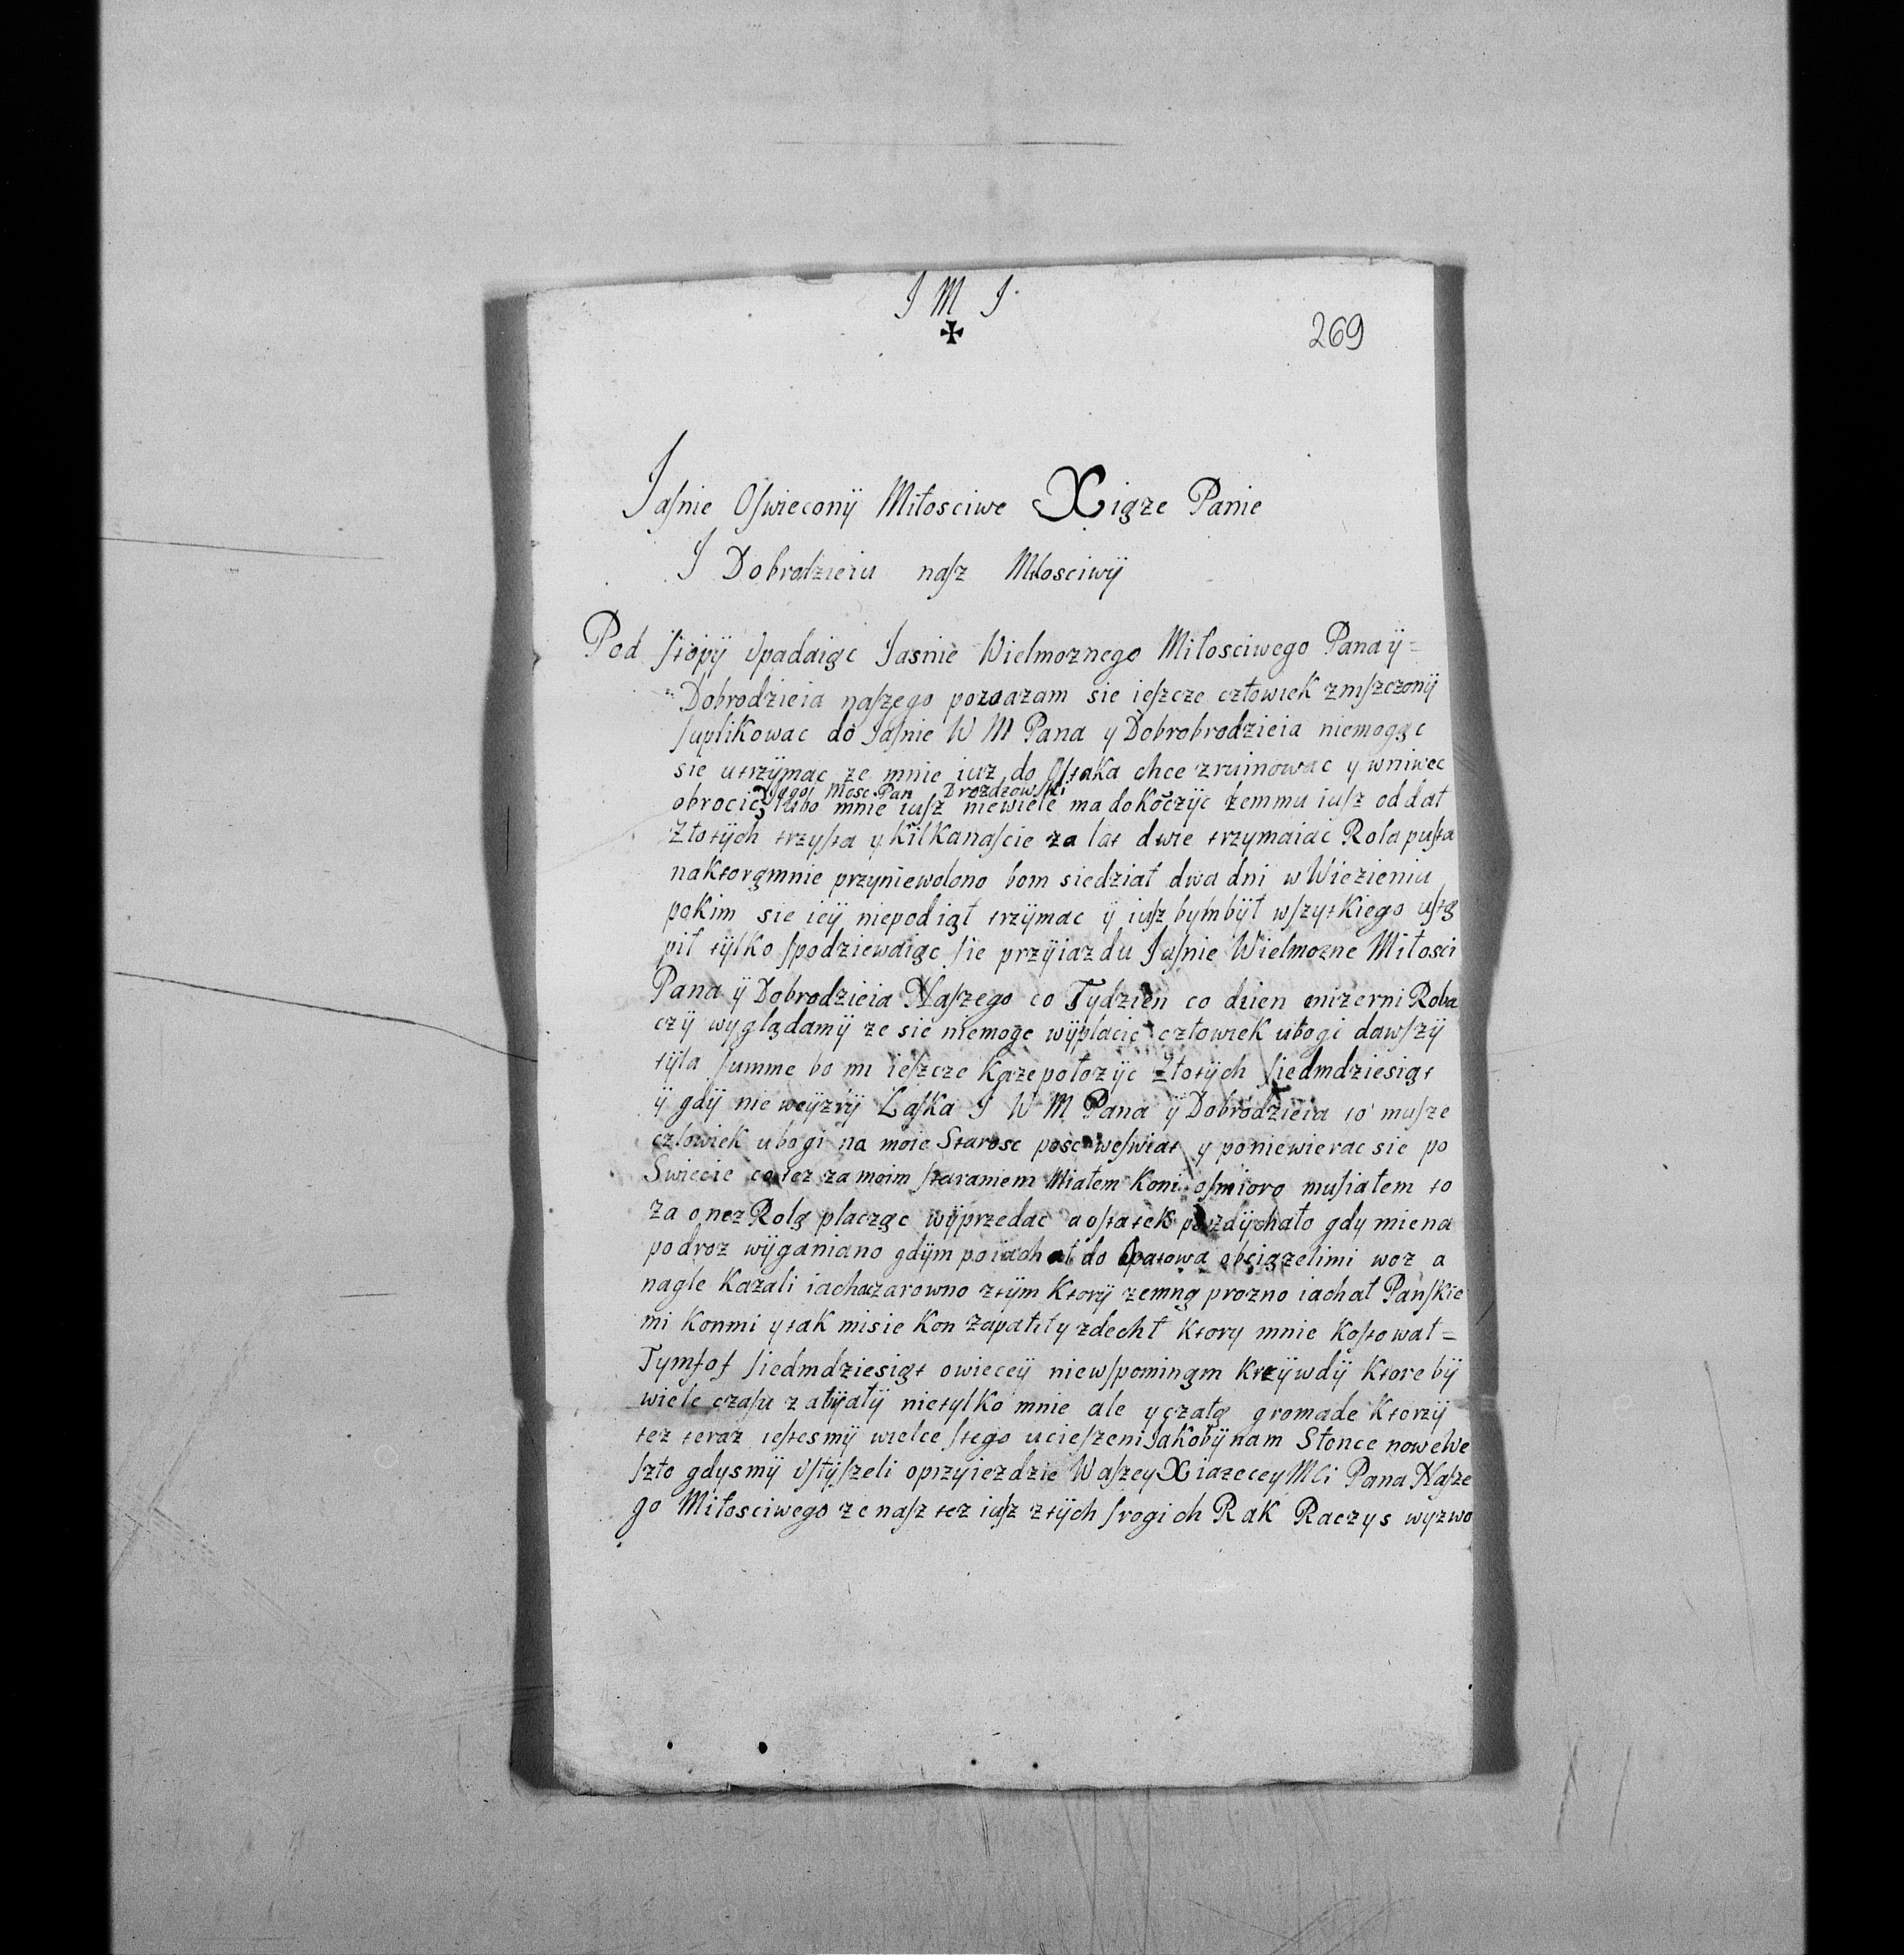 J M J
✠
269
Jaſnie Oſwieconÿ Miłosciwe Xiąze Panie
J Dobrodzieiu naſz Miłosciwÿ
Pod ſtopÿ Vpadaiąc Jasnie Wielmoznego Miłosciwego Pana ÿ =
Dobrodzieia naſzego powazam sie ieſzcze człowiek zniſzczonÿ
ſuplikowac do Jaſnie W M Pana y Dobrobrodzieia niemogąc
sie utrzÿmac ze mnie iuz do Oſtaka chce zruinowac y wniwec
Jegoi Mosc Pan Drozdzowſki
obrocic lubo mnie iuſz niewiele ma dokoczÿc zemmu iuſz oddał
Złotÿch trzyſta y kilkanaſcie za lat dwie trzymaiac Rola puſta
naktorąmnie przyniewolono bom siedział dwa dni w Wiezieniu
pokim sie ieÿ niepodiął trzÿmac ÿ iuſz bymbÿł wſzytkiego uſtą
pił tÿlko ſpodziewaiąc ſie przÿiazdu Jaſnie Wielmozne Miłosci
Pana ÿ Dobrodzieia Naſzego co Tydzien co dzien mizerni Roba
czÿ wyglądamÿ ze sie niemoge wÿplacic człowiek ubogi dawſzÿ
tÿla ſumme bo mi ieſzcze kaze połozÿc Złotÿch ſiedmdziesiąt
ÿ gdÿ nie weÿzrÿ Laſka J W M Pana ÿ Dobrodzieia to muſze
człowiek ubogi na moie Starosc posc weſwiat y poniewierac sie po
Swiecie cotez za moim ſtaraniem Miałem koni oſmioro muſiałem to
za onez Rolą placząc wÿprzedac a oſtatek pozdÿchało gdy miena
podroz wÿganiano gdÿm poiachał do Opatowa obciązelimi woz a
nagle kazali iachazarowno ztÿm ktorÿ zemną prozno iachał Panſkie
mi konmi y tak misie kon zapalił y zdechł ktory mnie koſtował =
Tymfof ſiedmdziesiąt owieceÿ niewſpominąm krzÿwdÿ ktore bÿ
wiele czaſu zabÿałÿ nietylko mnie ale y czałą gromade ktorzÿ
tez teraz ieſtesmÿ wielce ſtego ucieſzeni Jakobÿ nam Słonce nowe We
ſzło gdysmÿ Vſłÿſzeli oprzyiezdzie Waſzey Xiazecey Mci Pana Naſze
go Miłosciwego ze naſz tez iuſz ztÿch ſrogich Rak Raczys wyzwo